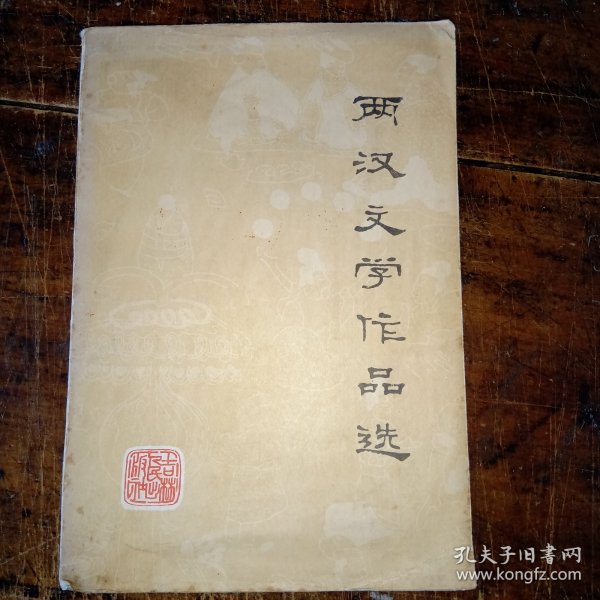 两汉文学作品选
吉林人民出版社
孔夫子旧书网
www.kongfz.com